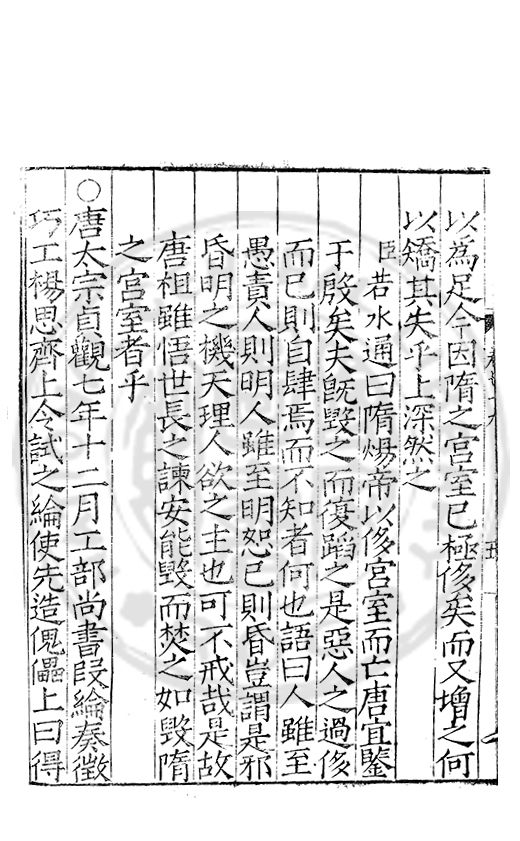 以為足今因隋之宮室已極侈矣而又增之何
以矯其失乎上深然之
臣若水通曰隋煬帝以侈宮室而亡唐宜鑒
于殷矣夫旣毀之而復蹈之是惡人之過侈
而已則自肆焉而不知者何也語曰人雖至
愚責人則明人雖至明恕已則昏豈謂是邪
昏明之機天理人欲之主也可不戒哉是故
唐祖雖悟世長之諫安能毀而焚之如毀隋
之宮室者乎
○唐太宗貞觀七年十二月工部尚書段綸奏徵
巧工楊思齊上令試之綸使先造傀儡上曰得